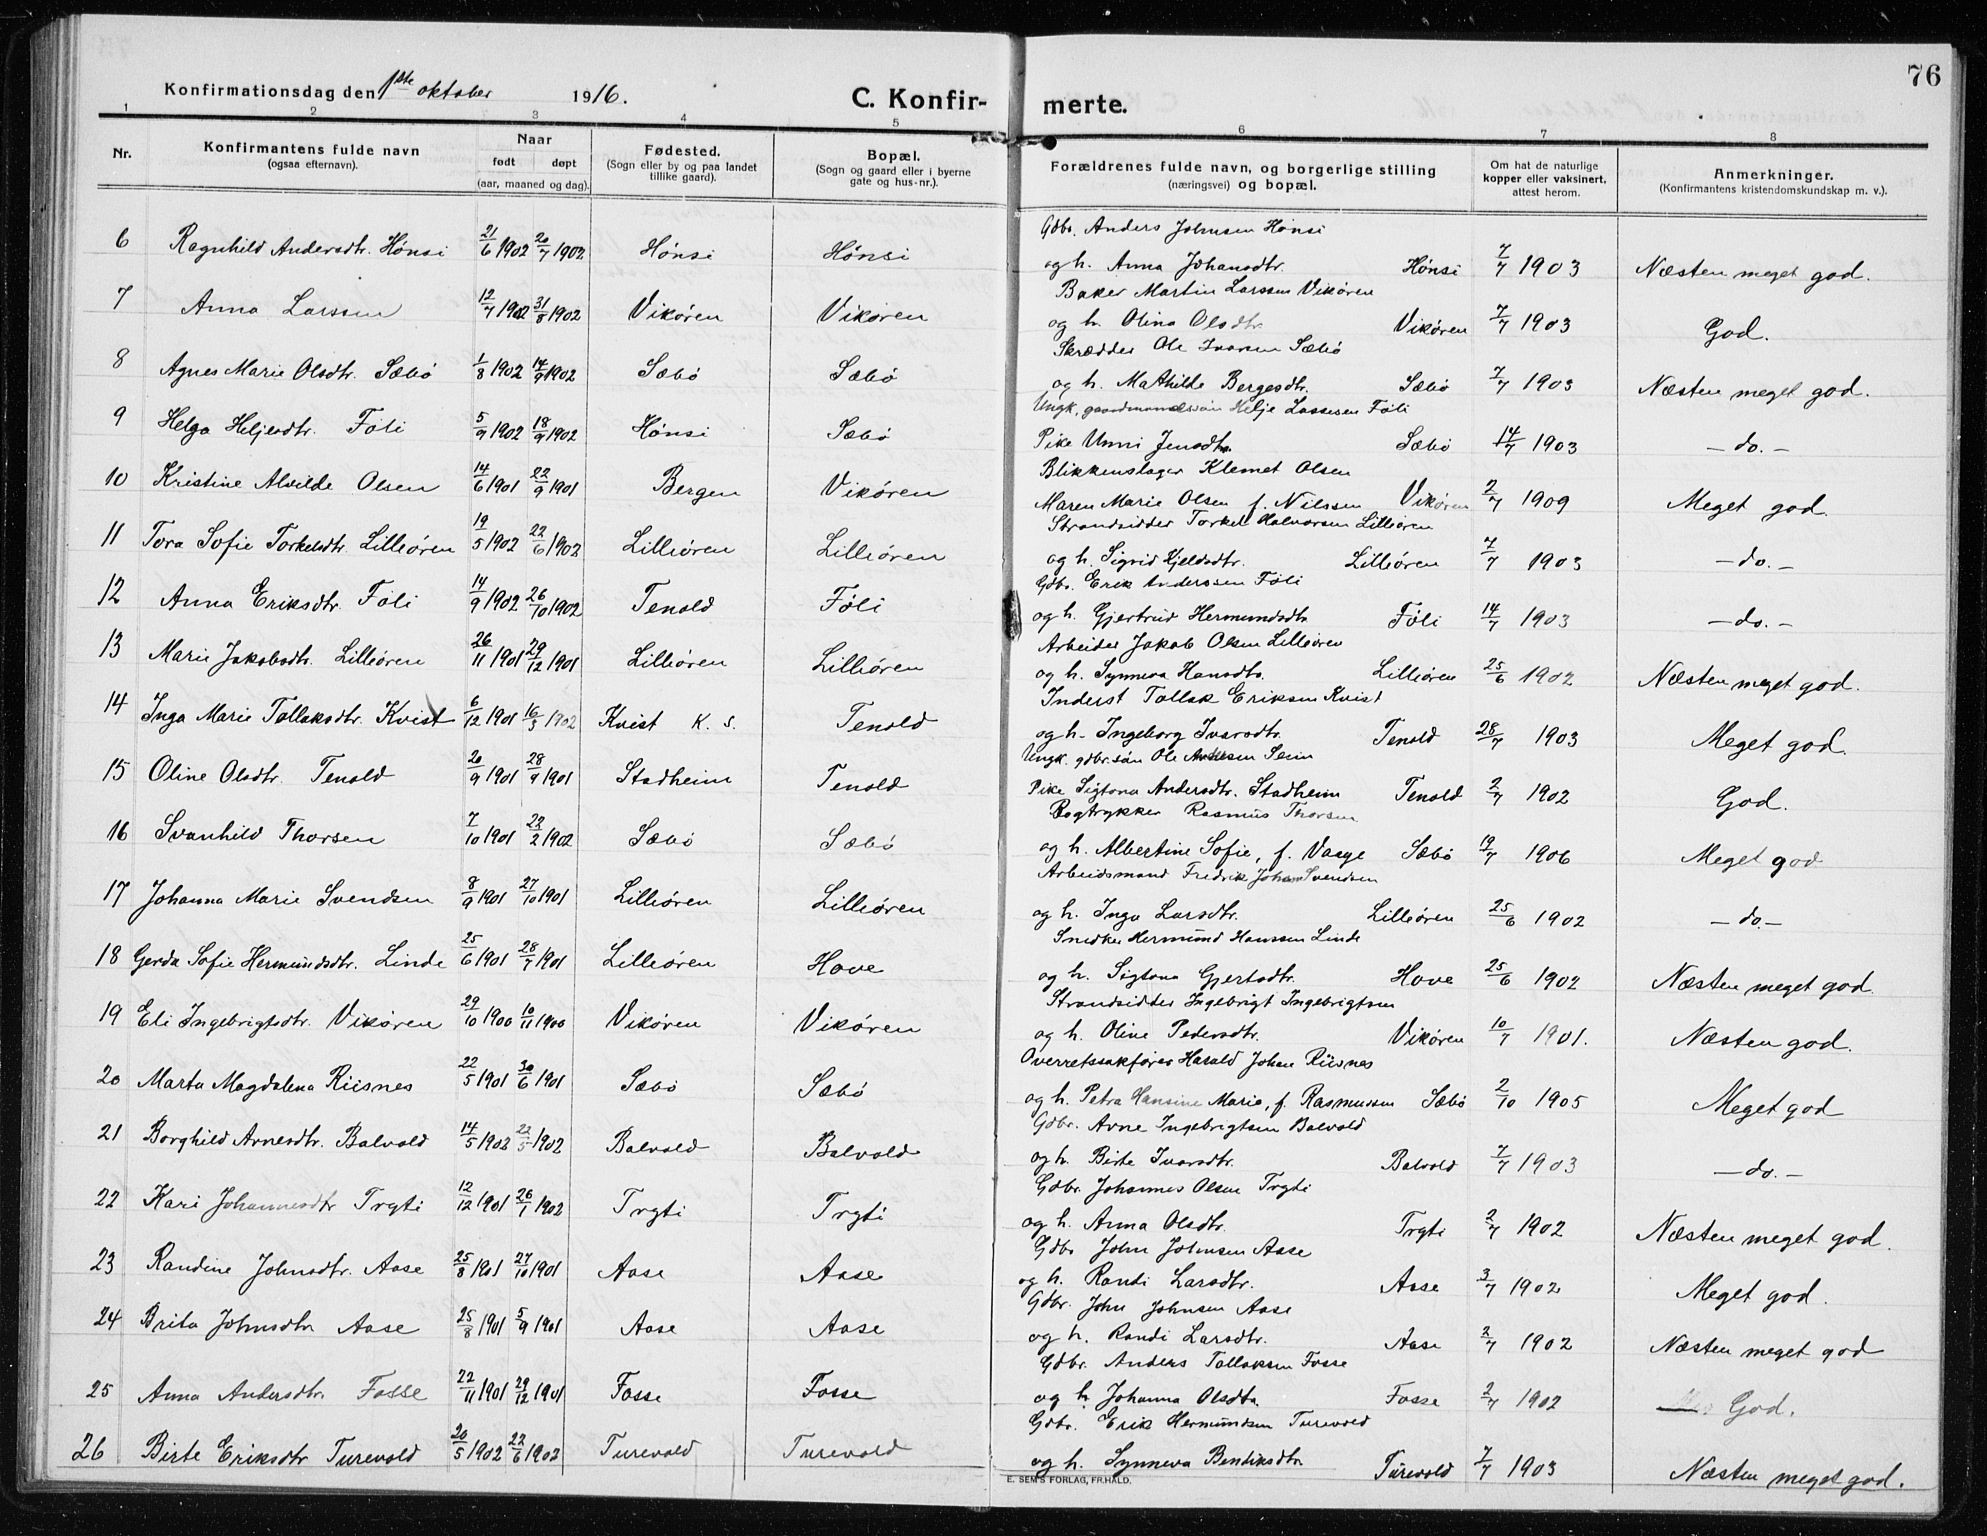 76
Konfirmationsdag den 1ste oktober 1916.
C. Konfirmerte.
1 2 3 4 5 6 7 8
Nr.
Konfirmantens fulde navn
(ogsaa efternavn).
Naar
født døpt
(aar, maaned og dag).
Fødested.
(Sogn eller by og paa landet
tillike gaard).
Bopæl.
(Sogn og gaard eller i byerne
gate og hus-nr.).
Forældrenes fulde navn, og borgerlige stilling
(næringsvei) og bopæl.
Om hat de naturlige
kopper eller vaksinert,
attest herom.
Anmerkninger.
(Konfirmantens kristendomskundskap m. v.).
Gdbr. Anders Johnsen Hønsi
6 Ragnhild Andersdtr. Hønsi 21/6 1902 20/7 1902 Hønsi Hønsi og h. Anna Johansdtr. Hønsi 7/7 1903 Næsten meget god.
Baker Martin Larssen Vikøren
7 Anna Larssen 12/7 1902 31/8 1902 Vikøren Vikøren og h. Olina Olsdtr. Vikøren 7/7 1903 God.
Skrædder Ole Ivarsen Sæbø
8 Agnes Marie Olsdtr. Sæbø 1/8 1902 14/9 1902 Sæbø Sæbø og h. Mathilde Bergesdtr. Sæbø 7/7 1903 Næsten meget god.
Ungk. gaardmandssøn Helje Lassesen Føli
9 Helga Heljesdtr. Føli 5/9 1902 18/9 1902 Hønsi Sæbø Pike Unni Jensdtr. Sæbø 14/7 1903 – do. –
Blikkenslager Klemet Olsen
10 Kristine Alvilde Olsen 14/6 1901 22/9 1901 Bergen Vikøren Maren Marie Olsen f. Nilssen Vikøren 2/7 1909 Meget god.
Strandsidder Torkel Halvorsen Lilleøren
11 Tora Sofie Torkelsdtr. Lilleøren 19/5 1902 22/6 1902 Lilleøren Lilleøren og h. Sigrid Kjeldsdtr. Lilleøren 7/7 1903 – do. –
Gdbr. Erik Anderssen Føli
12 Anna Eriksdtr. Føli 14/9 1902 26/10 1902 Tenold Føli og h. Gjertrud Hermundsdtr. Føli 14/7 1903 – do. –
Arbeider Jakob Olsen Lilleøren
13 Marie Jakobsdtr. Lilleøren 26/11 1901 29/12 1901 Lilleøren Lilleøren og h. Synneva Hansdtr. Lilleøren 25/6 1902 Næsten meget god.
Inderst Tollak Eriksen Kvist
14 Inga Marie Tollaksdtr. Kvist 6/12 1901 16/3 1902 Kvist K. S. Tenold og h. Ingeborg Ivarsdtr. Tenold 28/7 1903 Meget god.
Ungk. gdbr.søn Ole Andersen Seim
15 Oline Olsdtr. Tenold 20/9 1901 28/9 1901 Stadheim Tenold Pike Sigtona Andersdtr. Stadheim Tenold 2/7 1902 God.
Bogtrykker Rasmus Thorsen
16 Svanhild Thorsen 7/10 1901 22/2 1902 Sæbø Sæbø og h. Albertine Sofie, f. Vaage Sæbø 19/7 1906 Meget god
Arbeidsmand Fredrik Johan Svendsen
17 Johanna Marie Svendsen 8/9 1901 27/10 1901 Lilleøren Lilleøren og h. Inga Larsdtr. Lilleøren 25/6 1902 – do –
Snedker Hermund Hanssen Linde
18 Gerda Sofie Hermundsdtr. Linde 25/6 1901 28/7 1901 Lilleøren Hove og h. Sigtona Gjertsdtr. Hove 25/6 1902 Næsten meget god.
Strandsidder Ingebrigt Ingebrigtsen
19 Eli Ingebrigtsdtr. Vikøren 29/10 1900 10/11 1900 Vikøren Vikøren og h. Oline Pedersdtr. Vikøren 10/7 1901. Næsten god.
Overretssakfører Harald Johan Riisnes
20 Marta Magdalena Riisnes 22/5 1901 30/6 1901 Sæbø Sæbø og h. Petra Hansine Marie, f. Rasmussen Sæbø 2/10 1905 Meget god
Gdbr. Arne Ingebrigtsen Balvold
21 Borghild Arnesdtr. Balvold 14/5 1902 22/5 1902 Balvold Balvold og h. Birte Ivarsdtr. Balvold 7/7 1903 – do. –
Gdbr. Johannes Olsen Trgti
22 Kari Johannesdtr Trgti 12/12 1901 26/1 1902 Trgti Trgti og h. Anna Olsdtr. Trgti 2/7 1902 Næsten meget god.
Gdbr John Johnsen Aase
23 Randine Johnsdtr. Aase 25/8 1901 27/10 1901 Aase Aase og h. Randi Larsdtr. Aase 3/7 1902 Meget god.
Gdbr. John Johnsen Aase
24 Brita Johnsdtr Aase 25/8 1901 5/9 1901 Aase Aase og h. Randi Larsdtr. Aase 2/7 1902 Næsten meget god
Gdbr. Anders Tollaksen Fosse
25 Anna Andersdtr. Fosse 22/11 1901 29/12 1901 Fosse Fosse og h. Johanna Olsdtr. Fosse 2/7 1902 God.
Gdbr. Erik Hermundsen Turevold
26 Birte Eriksdtr Turevold 20/5 1902 22/6 1902 Turevold Turevold og h. Synneva Bendiksdtr. Turevold 7/7 1903 Næsten meget god.
E. SEM'S FORLAG, FR.HALD.